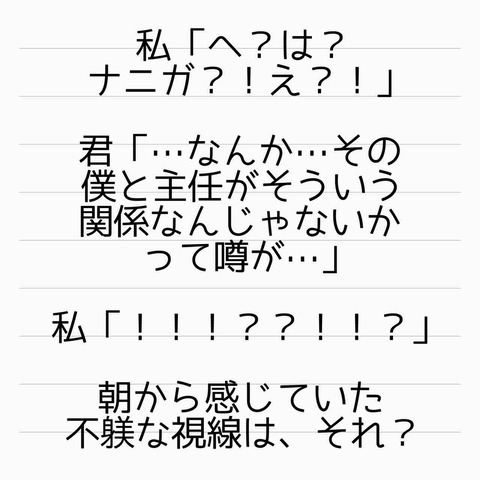 私「へ？は？
ナニガ？！え？！」
君「…なんか…その
僕と主任がそういう
関係なんじゃないか
って噂が…」
私「！！！？？！！？」
朝から感じていた
不躾な視線は、それ？